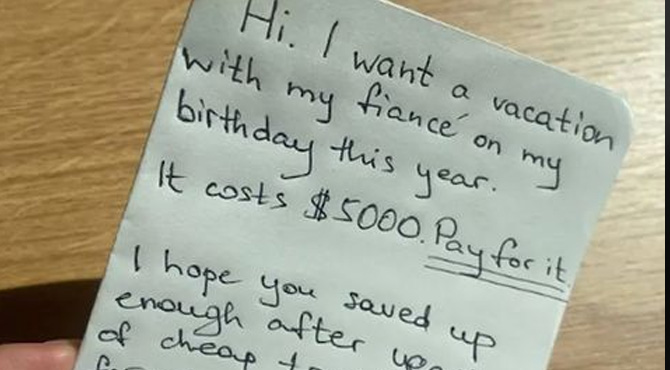 Hi. I want a vacation
with my fiancé on my
birthday this year.
It costs $5000. Pay for it.
I hope you saved up
enough after
of cheap